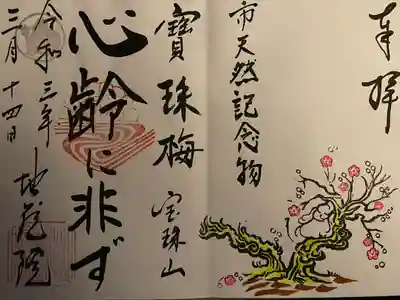 奉拝
市天然記念物
寳珠梅 宝珠山
心齢に非ず
地蔵院
令和三年
三月十四日